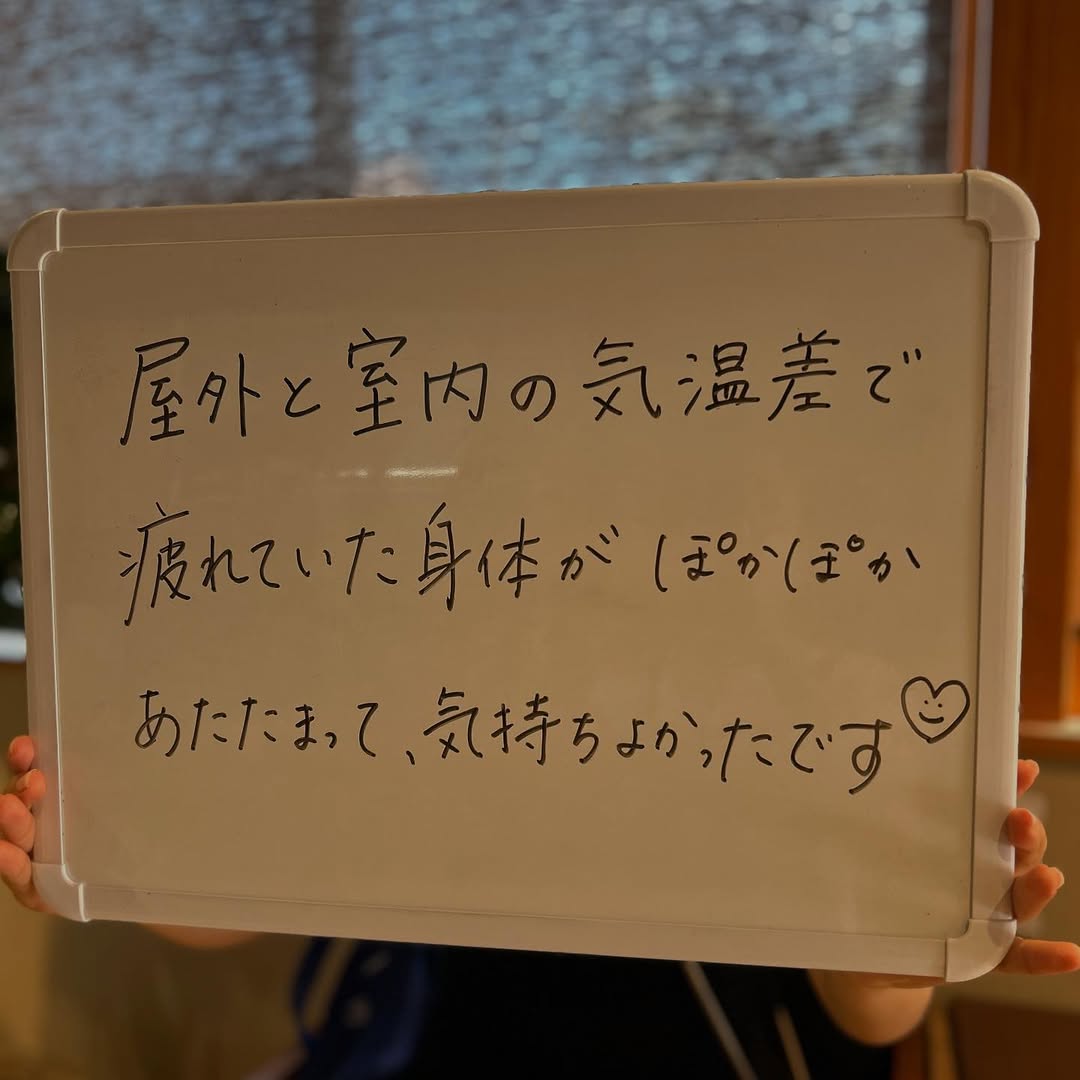 屋外と室内の気温差で
疲れていた身体がぽかぽか
あたたまって、気持ちよかったです